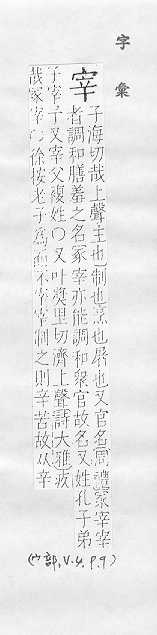 字彙
宰
子海切哉上聲主也制也烹也屠也又官名周禮冢宰宰
者調和膳羞之名冢宰亦能調和衆官故名又姓孔子弟
子宰予又宰父複姓〇又叶奬里切濟上聲詩大雅疚
哉冢宰〇徐按老子爲而不宰宰制之則辛苦故从辛
(宀部, V.4, P.9)